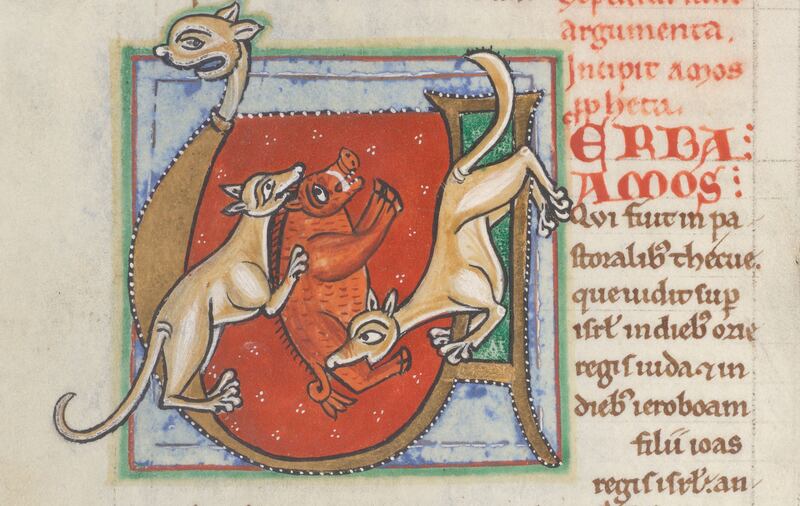 argumenta.
Incipit amos
ppheta.
ERBA
AMOS:
Qui fuit in pa
storalib' thecue.
que uidit sup
isrl in dieb' ozie
regis iuda & in
dieb' ieroboam
filii ioas
regis isrl. an